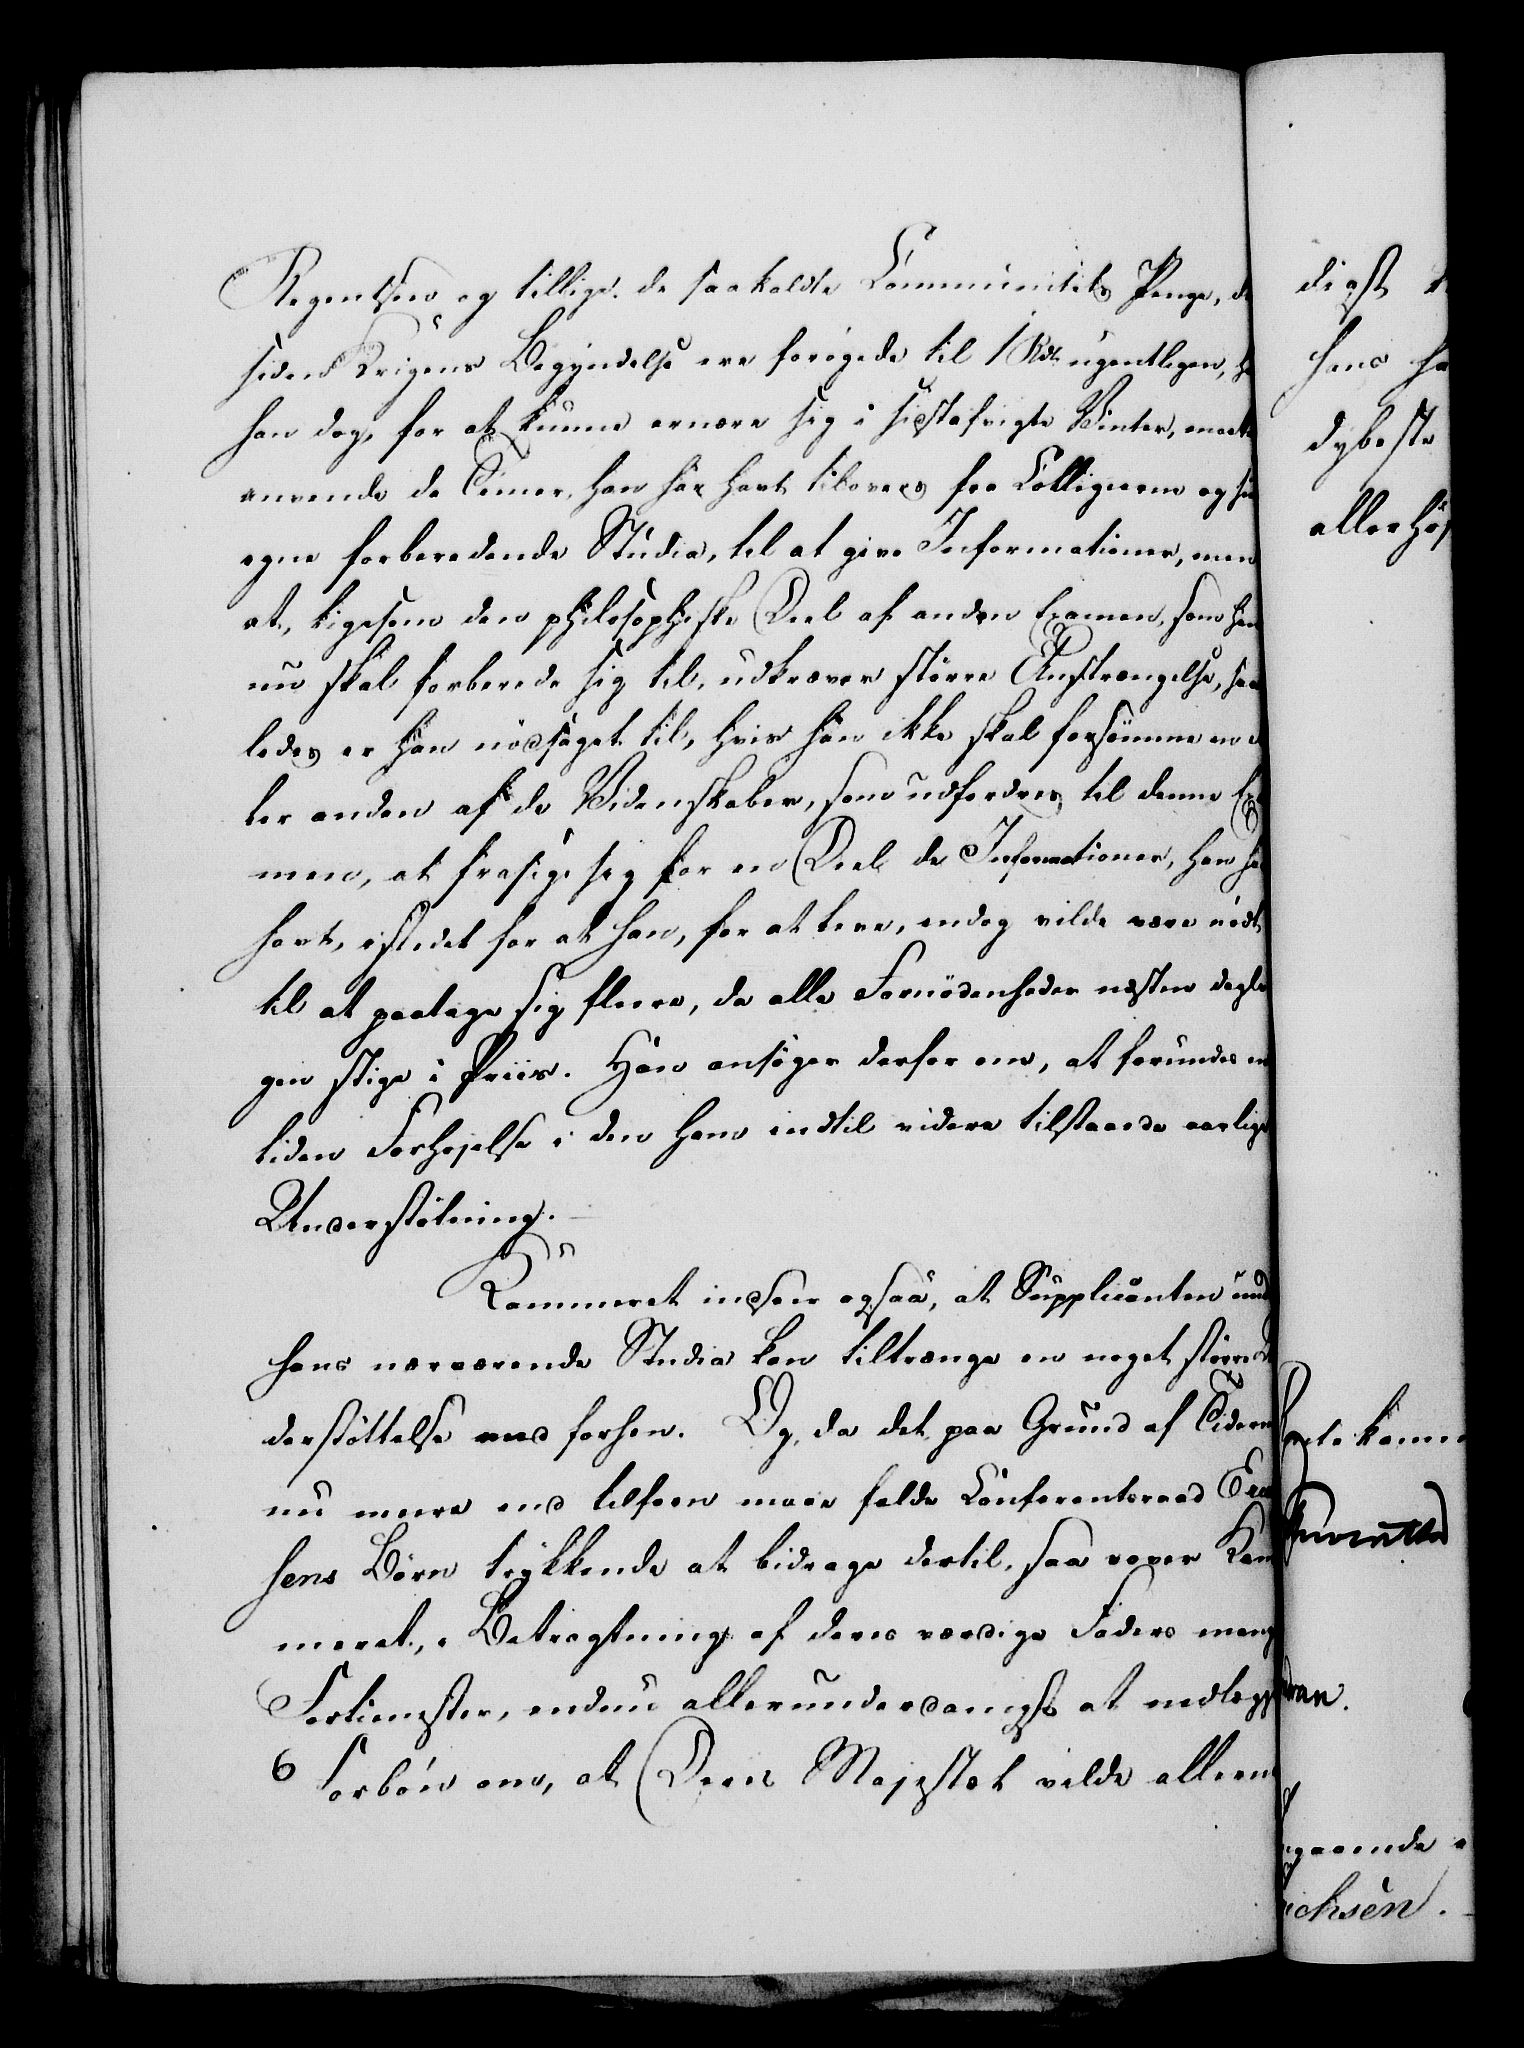 Regentsen og tillige de saakaldte Communitets Penge, de
siden Krigens Begyndelse ere forøgede til 1 Rdl. ugentligen, ha
han dog, for at kunne ernære sig i sidstafvigte Vinter, maatt
anvende de Timer, han har havt tilovers fra Collegierne og sin
egne forberedende Studia, til at give Informationer, men
at, ligesom den philosophiske Deel af anden Examen, som han
nu skal forberede sig til, udkræver større Anstrængelse, saa
ledes er han nødsaget til, hvis han ikke skal forsømme en el
ler anden af de Videnskaber, som udfordres til denne Exa
men, at frasige sig for en Deel de Informationer, han har
havt, istedet for at han, for at leve, endog vilde være nødt
til at paatage sig fleere, da alle Fornødenheder næsten dagli
gen stige i Priis. Han ansøger derfor om, at forundes en
liden Forhøjelse i den ham indtil videre tilstaaede aarlige
Understøtning.
Kammeret indseer ogsaa, at Supplicanten und
hans nærværende Studia kan tiltrænge en noget større Un
derstøttelse end forhen. Og, da det paa Grund af Tidern
nu meere end tilforn maae falde Conferentsraad Eric
hsens Børn trykkende at bidrage dertil, saa vover Kam
meret, i Betragtning af deres værdige Faders mang
Fortienester, endnu allerunderdanigst at nedlægge
6 Forbøn om, at Deres Majestæt vilde allern
digst
hans ha
dybeste
allerhøj
tekamm
gaaende
ichsen.